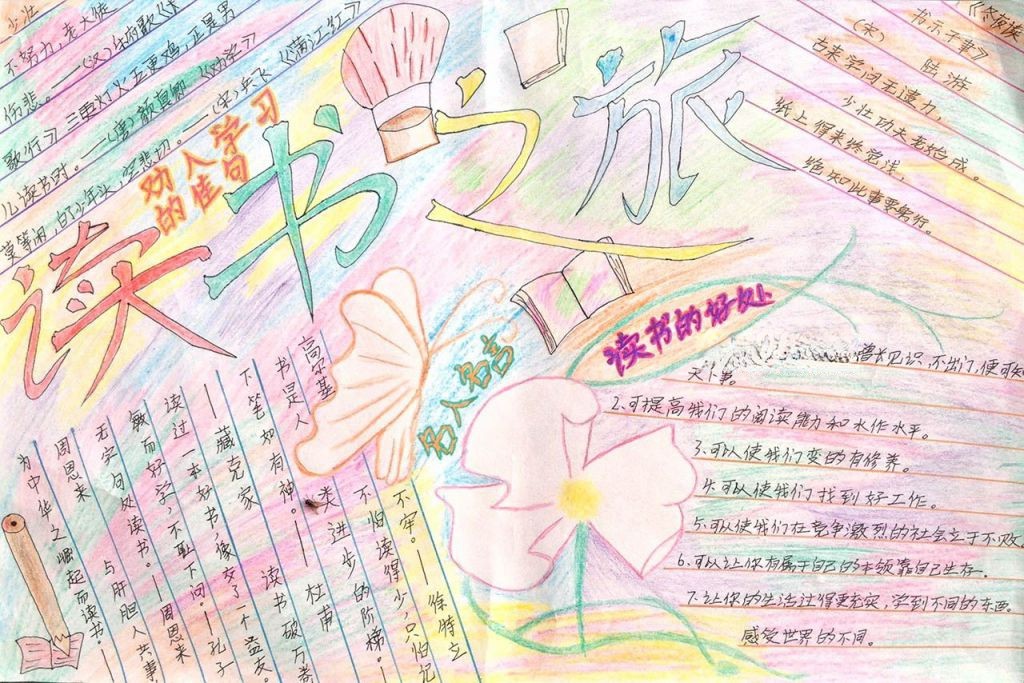 少壮
不努力,老大徒
伤悲。——(汉)乐府歌《长
歌行》 三更灯火五更鸡,正是男
儿读书时。——(唐)颜真卿 《劝学》
莫等闲,白了少年头,空悲切。——(宋)岳飞 《满江红》
劝人学习
的佳句
读书之旅
《冬夜读
书示子聿》
(宋) 陆游
古来学问无遗力,
少壮功夫老始成。
纸上得来终觉浅,
绝知此事要躬行。
读书的好处
增长见识,不出门,便可知
天下事。
2.可提高我们的阅读能力和水作水平。
3.可以使我们变的有修养。
4.可以使我们找到好工作。
5.可以使我们在竞争激烈的社会立于不败。
6.可以让你有属于自己的本领靠自己生存。
7.让你的生活过得更充实,学到不同的东西。
感受世界的不同。
名人名言
不牢。——徐特立
不怕读得少,只怕记
类进步的阶梯。——
高尔基
书是人
下笔如有神。——杜甫
读书破万卷
——臧克家
读过一本好书,像交了一个益友。
敏而好学,不耻下问。——孔子
无字句处读书。——周恩来
周恩来
与肝胆人共事
为中华之崛起而读书。——